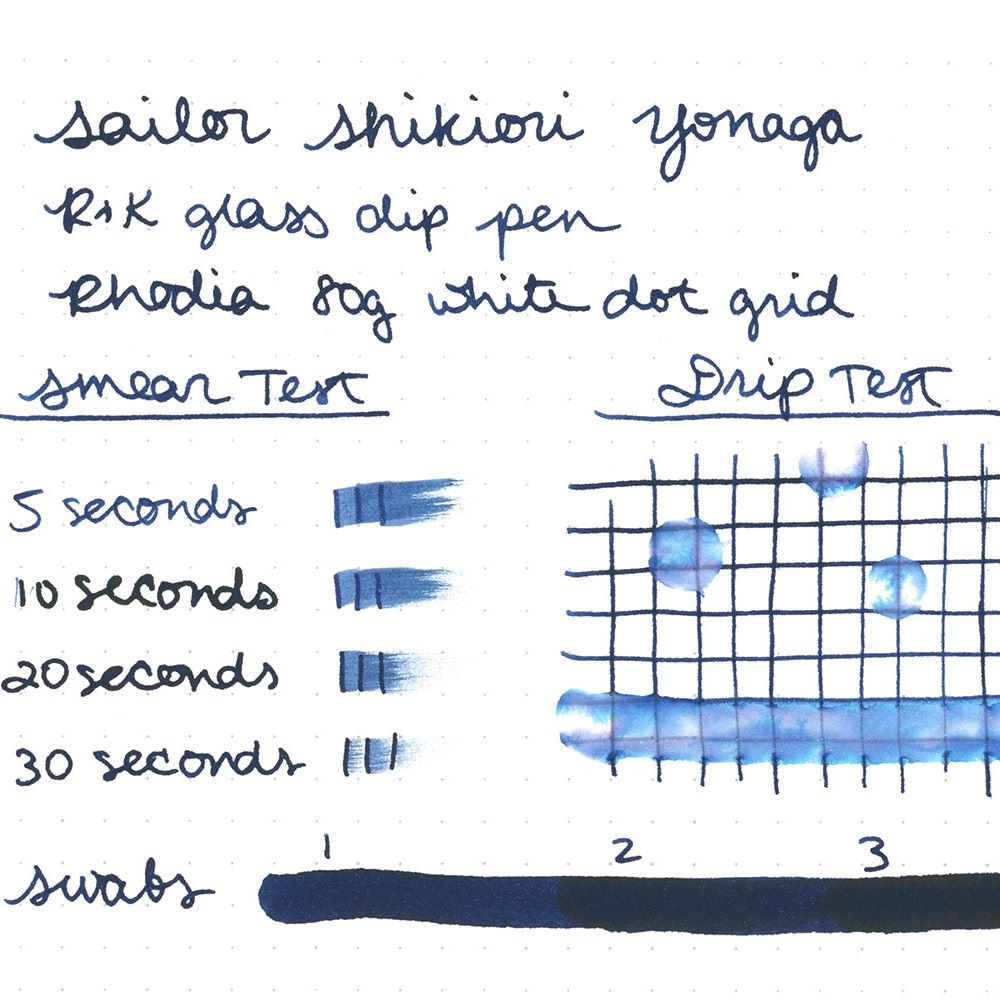 sailor shikiori yonaga
R&K glass dip pen
Rhodia 80g white dot grid
Smear Test
Drip Test
5 seconds
10 seconds
20 seconds
30 seconds
1 2 3
swabs